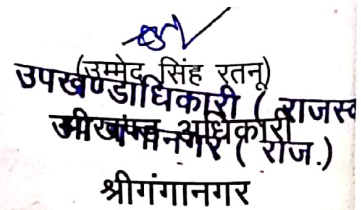 (उम्मेद सिंह रतनू)
उपखण्डाधिकारी ( राजस्व
उपखण्ड अधिकारी
श्रीगंगानगर ( राज.)
श्रीगंगानगर